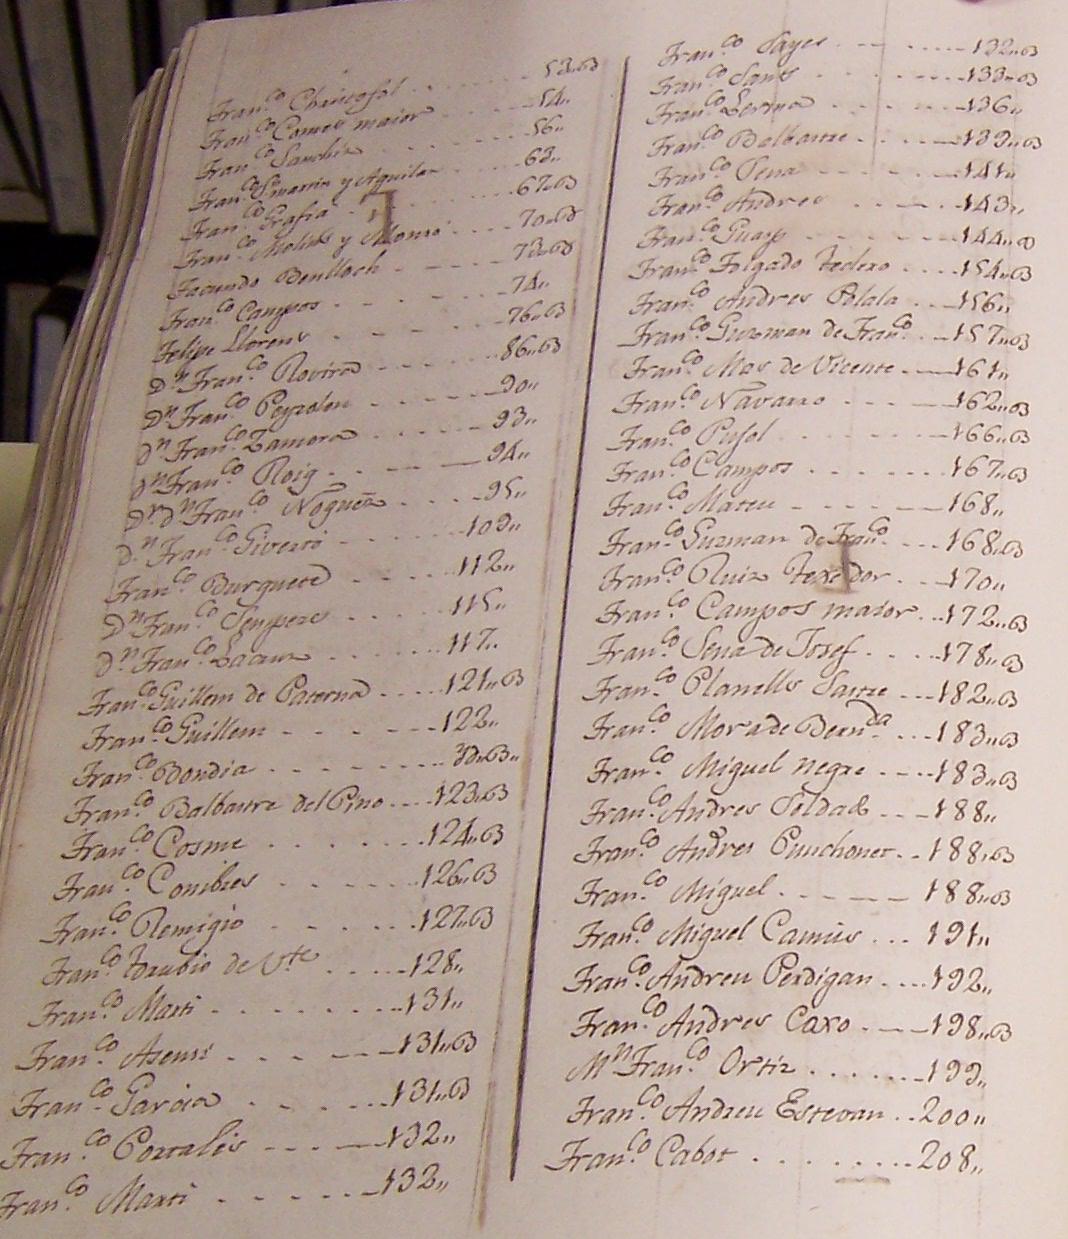 Fran.co Chiricosol . . . . . . . 53,,63
Fran.co Comes maior . . . . 54,,
Fran.co Sanchis . . . . . . . 56,,
Fran.co Sn.martin y Aguilar . . . . 63,,
Fran.co Grafia . . . . . . . 67,,63
Fran.co Molins y Alonso . . . . 70,,63
Facundo Benlloch . . . . . 73,,63
Fran.co Campos . . . . . . . 74,,
Felipe Llorens . . . . . . . 76,,63
Dn. Fran.co Rovira . . . . . . 86,,63
Dn Fran.co Peyrolon . . . . . . 90,,
Dn Fran.co Zamora . . . . . . 93,,
Dn Fran.co Roig . . . . . . . 94,,
Dr. dn Fran.co Noguera . . . . . 95,,
D.n Fran.co Giverto . . . . . . 109,,
Fran.co Burguete . . . . . . 112,,
Dn Fran.co Sempere . . . . . 115,,
D.n Fran.co Lacaur . . . . . . 117,,
Fran.co Guillem de Paterna . . . . . 121,,63
Fran.co Guillem . . . . . . . 122,,
Fran.co Bondia . . . . . . . 33,,63,,
Fran.co Balbastre del Pino . . . . 123,,63
Fran.co Cosme . . . . . . . 124,,63
Fran.co Combres . . . . . . 126,,63
Fran.co Remigio . . . . . . 127,,63
Fran.co de Vte . . . . . 128,,
Fran.co Marti . . . . . . . . 131,,
Fran.co Asensi . . . . . . . 131,,63
Fran.co Garcia . . . . . . . 131,,63
Fran.co Portalés . . . . . . 132,,
Fran.co Marti . . . . . . . 132,,
Fran.co Sayes . . . . . . . 132,,63
Fran.co Sans . . . . . . . 133,,63
Fran.co Lerma . . . . . . . 136,,
Fran.co Balbastre . . . . . . 139,,63
Fran.co Pena . . . . . . . 141,,
Fran.co Andres . . . . . . 143,,
Fran.co Guasp . . . . . . . 144,,63
Fran.co Folgado tedexo . . . . 154,,63
Fran.co Andres Polala . . . 156,,
Fran.co Guzman de Fran.co . . 157,,63
Fran.co Mas de Vicente . . . 161,,
Fran.co Navarro . . . . . . 162,,63
Fran.co Pujol . . . . . . . 166,,63
Fran.co Campos . . . . . . . 167,,63
Fran.co Mateu . . . . . . . 168,,
Fran.co Guzman de Fran.co . . . . 168,,63
Fran.co Ruiz texedor . . . 170,,
Fran.co Campos maior . . . 172,,63
Fran.co Sena de Josef . . . . . 178,,63
Fran.co Planells Sastre . . . 182,,63
Fran.co Mora de Bern.da . . . 183,,63
Fran.co Miguel negre . . . . 183,,63
Fran.co Andres Soldado . . . 188,,
Fran.co Andres Punchonet . . 188,,63
Fran.co Miguel . . . . . . 188,,63
Fran.co Miguel Camús . . . 191,,
Fran.co Andreu Perdigan . . . . 192,,
Fran.co Andres Caxo . . . . 198,,63
Mn Fran.co Ortiz . . . . . . . 199,,
Fran.co Andreu Estevan . . 200,,
Fran.co Cabot . . . . . . . . 208,,